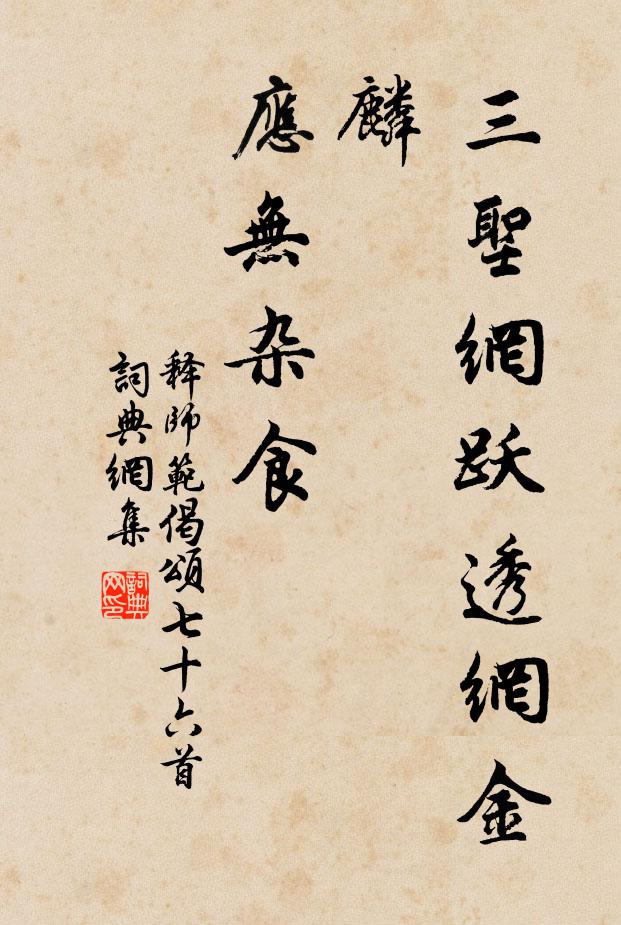 三聖網跃透網金
麟
應無杂食
释師範偈頌七十六首
詞典網集
詞典网印